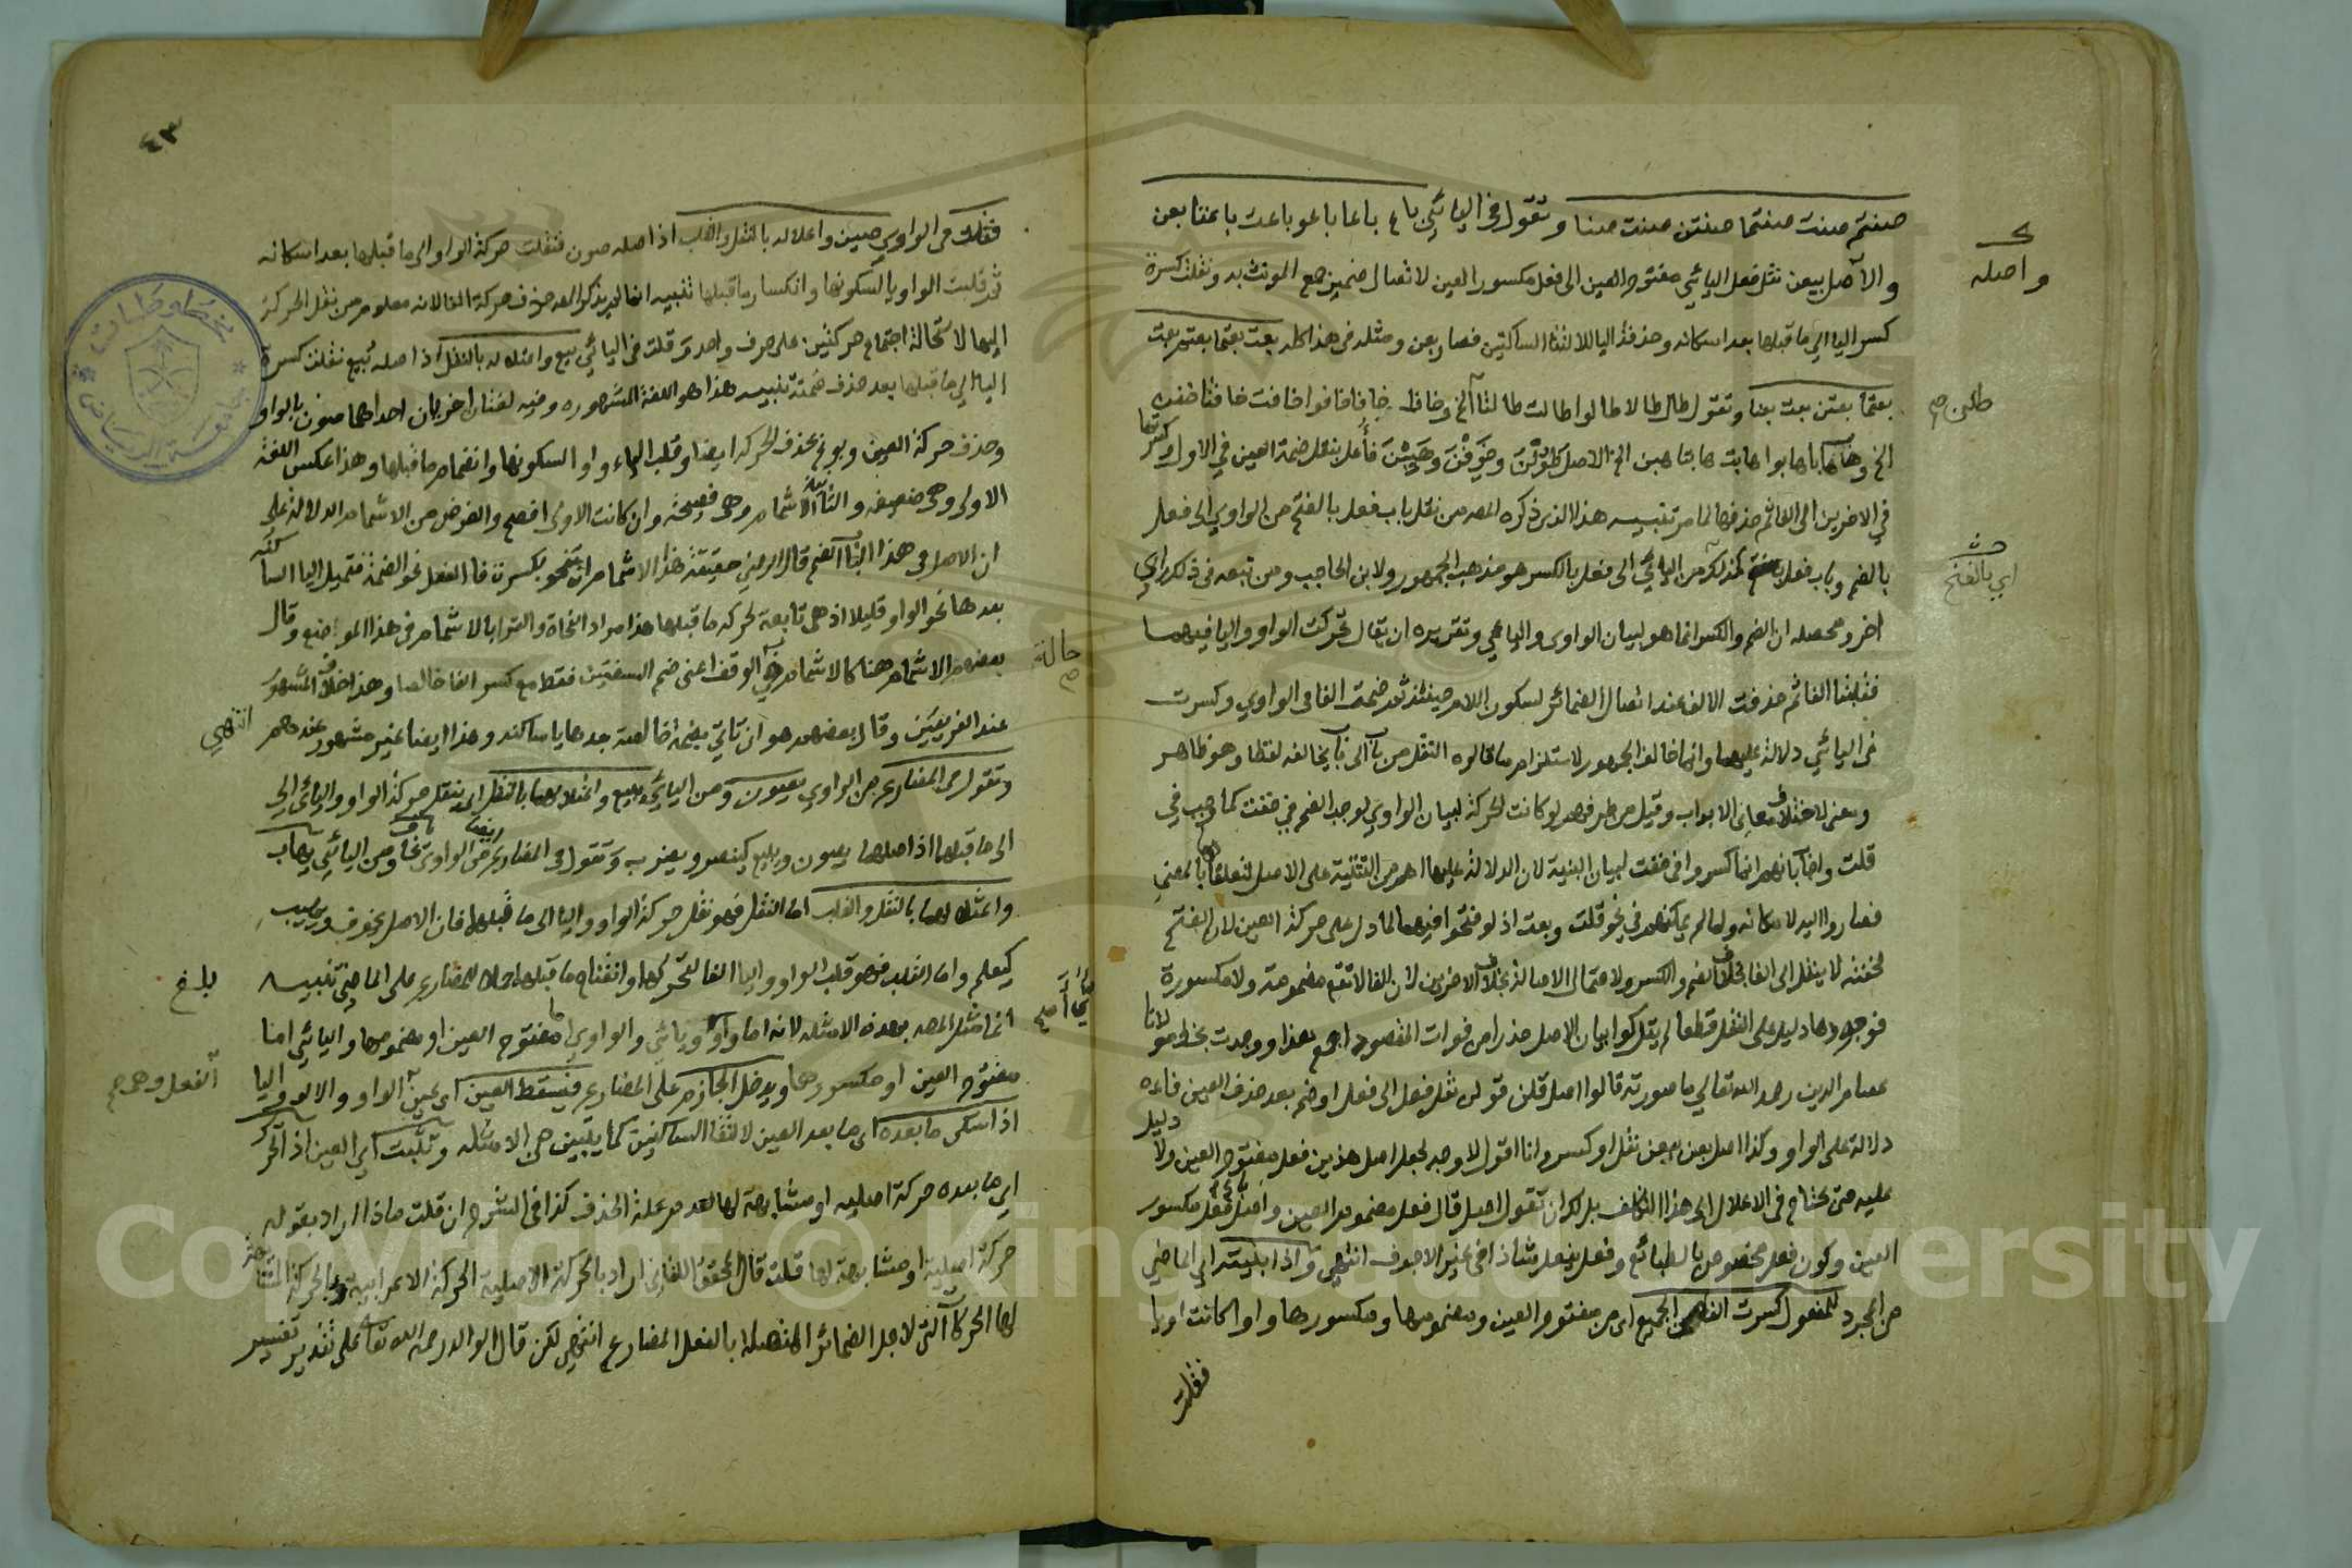 صنتم صنت صنتما صنتن صنت صنا وتقول في اليائي باع باعا باعوا باعت باعتا بعن
والاصل بيعن نقل فعل اليائي مفتوح العين الى فعل مكسور العين لاتصال ضمير جمع المونث به ونقلت كسرة
كسر اليا الى ما قبلها بعد اسكانه وحذفت اليا لالتقا الساكنين فصار بعن ومثله في هذا كله بعت بعتما بعتم بعت
بعتما بعتن بعت بعنا وتقول طال طالا طالوا طالت طالتا الخ وخاف خافا خافوا خافت خافتا خفن
الخ وهاب هابا هابوا هابت هابتا هبن الخ الاصل طَوُلْنَ وخَوِفْنَ وهَيِبْنَ فأعل بنقل ضمة العين في الاول وكسرتها
في الاخرين الى الفا ثم حذفها لما مر تنبيه هذا الذي ذكره المصـ من نقل باب فعل بالفتح من الواوي الى فعل
بالضم وباب فعل كذلك من اليائي الى فعل بالكسر هو مذهب الجمهور ولابن الحاجب ومن تبعه في ذلك راي
اخر ومحصله ان الضم والكسر انما هو لبيان الواوي واليائي وتقريره ان يقال تحركت الواو واليا فيهما
فقلبتا الفا ثم حذفت الالف عند اتصال الضمائر لسكون اللام حينئذ ثم ضمت الفا في الواوي وكسرت
في اليائي دلالة عليهما وانما خالف الجمهور لاستلزام ما قالوه النقل من باب الى باب يخالفه لفظا وهو ظاهر
ومعنى لاختلاف معاني الابواب وقيل من طرفهم لو كانت الحركة لبيان الواوي لوجب الضم في خفت كما وجب في
قلت واجاب بانهم انما كسروا في خفت لبيان البنية لان الدلالة عليها اهم من التنبيه على الاصل لتعلقها بالمعنى
فصاروا اليه لامكانه ولما لم يمكنهم في نحو قلت وبعت اذ لو فتحوا فيهما لما دل على حركة العين لان الفتح
لخفته لا ينقل الى الفا بخلاف الضم والكسر ولاحتمال الاصالة بخلاف الاخرين لان الفا لا تقع مضمومة ولا مكسورة
فوجودها دليل على النقل قطعا لم يتركوا بيان الاصل حذرا من فوات المقصود اجمع هذا ووجدت بخط مولانا
عصام الدين رحمه الله تعالى ما صورته قالوا اصل قلن قولن نقل فعل الى فعل او ضم بعد حذف العين فاءه
دلالة على الواو وكذا اصل بعن بيعن نقل او كسر وانا اقول لا وجه لجعل اصل هذين فعل مفتوح العين ولا دليل
عليه حتى يحتاج في الاعلال الى هذا التكلف بل لك ان تقول اصل قال فعل مضموم العين واصل باع فعل مكسور
العين وكون فعل مخصوص بالطبائع وفعل يفعل شاذا في غير الاجوف انتهى واذا بنيته اي الماضي
من المجرد للمفعول كسرت الفا من الجميع اي من مفتوح العين ومضمومها ومكسورها واوا كانت او يا
فقلت
واصله
طلن صح
اي بالفتح
٤٣
فقلت في الواوي صين واعلاله بالنقل والقلب اذ اصله صون فنقلت حركة الواو الى ما قبلها بعد اسكانه
ثم قلبت الواو يا لسكونها وانكسار ما قبلها تنبيه انما لم يذكر المصـ حذف حركة الفا لانه معلوم من نقل الحركة
اليها لاستحالة اجتماع حركتين على حرف واحد وقلت في اليائي بيع واعلاله بالنقل اذ اصله بيع نقلت كسرة
اليا الى ما قبلها بعد حذف ضمته تنبيه هذا هو اللغة المشهوره وفيه لغتان اخريان احداهما صون بالواو
وحذف حركة العين وبوع بحذف الحركة ايضا وقلب الياء واوا لسكونها وانضمام ما قبلها وهذا عكس اللغة
الاولى وهي ضعيفه والثانية الاشمام وهي فصيحة وان كانت الاولى افصح والغرض من الاشمام الدلالة على
ان الاصل في هذا الباب الضم قال الرضي حقيقة هذا الاشمام ان تنحو بكسرة فا الفعل نحو الضمة فتميل اليا الساكنه
بعدها نحو الواو قليلا اذ هي تابعة لحركة ما قبلها هذا مراد النحاة والقرا بالاشمام في هذا الموضع وقال
بعضهم الاشمام هنا كالاشمام في الوقف اعني ضم الشفتين فقط مع كسر الفا خالصا وهذا خلاف المشهور
عند الفريقين وقال بعضهم هو ان تاتي بضمة خالصة بعدها يا ساكنه وهذا ايضا غير مشهور عندهم انتهى
وتقول في المضارع من الواوي يصون ومن اليائي يبيع واعلالهما بالنقل اي نقل حركة الواو واليائي الى
الى ما قبلهما اذ اصلهما يصون ويبيع كينصر ويضرب وتقول في المضارع من الواوي يخاف ومن اليائي يهاب
واعتلالهما بالنقل والقلب اما النقل فهو نقل حركة الواو واليا الى ما قبلهما فان الاصل يخوف ويهيب
كيعلم واما القلب فهو قلب الواو واليا الفا لتحركهما وانفتاح ما قبلهما حملا للمضارع على الماضي تنبيه
انما مثل المصـ بهذه الامثله لانه اما واوي ويائي والواوي اما مفتوح العين او مضمومها واليائي اما
مفتوح العين او مكسورها ويدخل الجازم على المضارع فيسقط العين اي عين الفعل وهي الواو والالف واليا
اذا سكن ما بعده اي ما بعد العين لالتقا الساكنين كما يتبين في الامثله وتثبت اي العين اذا تحرك
اي ما بعده حركة اصليه او مشابهة لها لعدم علة الحذف كذا في الشرح ان قلت ماذا اراد بقوله
حركة اصلية او مشابهة لها قلت قال المحقق اللقاني اراد بالحركة الاصلية الحركة الاعرابية وبالحركة المشابهة
لها الحركات التي لاجل الضمائر المتصلة بالفعل المضارع انتهى لكن قال الوالد رحمه الله تعالى على تقدير تفسير
حالة
بلغ
الفعل وهي صح
Copyright © King Saud University